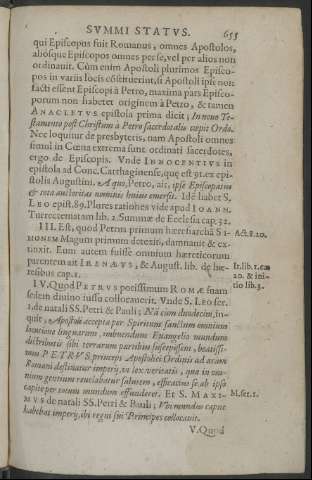 SVMMI STATVS. 655
qui Episcopus fuit Romanus, omnes Apostolos,
aliosque Episcopos omnes per se, vel per alios non
ordinauit. Cùm enim Apostoli plurimos Episco-
pos in variis locis cõstituerint, si Apostoli ipsi non
facti essent Episcopi à Petro, maxima pars Episco-
porum non haberet originem à Petro, & tamen
ANACLETVS epistola prima dicit; In nouo Te-
stamento post Christum à Petro sacerdotalis cœpit Ordo.
Nec loquitur de presbyteris, nam Apostoli omnes
simul in Cœna extrema sunt ordinati sacerdotes,
ergo de Episcopis. Vnde INNOCENTIVS in
epistola ad Conc. Carthaginense, quæ est 91. ex epi-
stolis Augustini. A quo, Petro, ait, ipse Episcopatus
& tota auctoritas nominis huius emersit. Idẽ habet S.
LEO epist. 89. Plures rationes vide apud IOANN.
Turrecremat. lib. 2. Summæ de Ecclesia cap. 32.
III. Est, quod Petrus primum hæresiarchã SI-
MONEM Magum primum detexit, damnauit & ex-
tinxit. Eum autem fuisse omnium hæreticorum
parentem ait IRENÆVS, & August. lib. de hæ-
resibus cap. 1.
Act. 8. 20.
Ir. lib. 1. ca
20. & ini-
tio lib. 3.
IV. Quod PETRVS potissimum ROMÆ suam
sedem diuino iussu collocauerit. Vnde S. LEO ser.
1. de natali SS. Petri & Pauli; Nã cùm duodecim, in-
quit, Apostoli accepta per Spiritum sanctum omnium
locutione linguarum, imbuendum Euangelio mundum
distributis sibi terrarum partibus suscepissent, beatissi-
mus PETRVS, princeps Apostolici Ordinis ad arcem
Romani destinatur imperij, vt lux veritatis, quæ in om-
nium gentium reuelabatur salutem, efficacius se ab ipso
capite per totum mundum effunderet. Et S. MAXI-
MVS de natali SS. Petri & Pauli; Vbi mundus caput
habebat imperij, ibi regni sui Principes collocauit.
M. ser. 1.
V. Quod